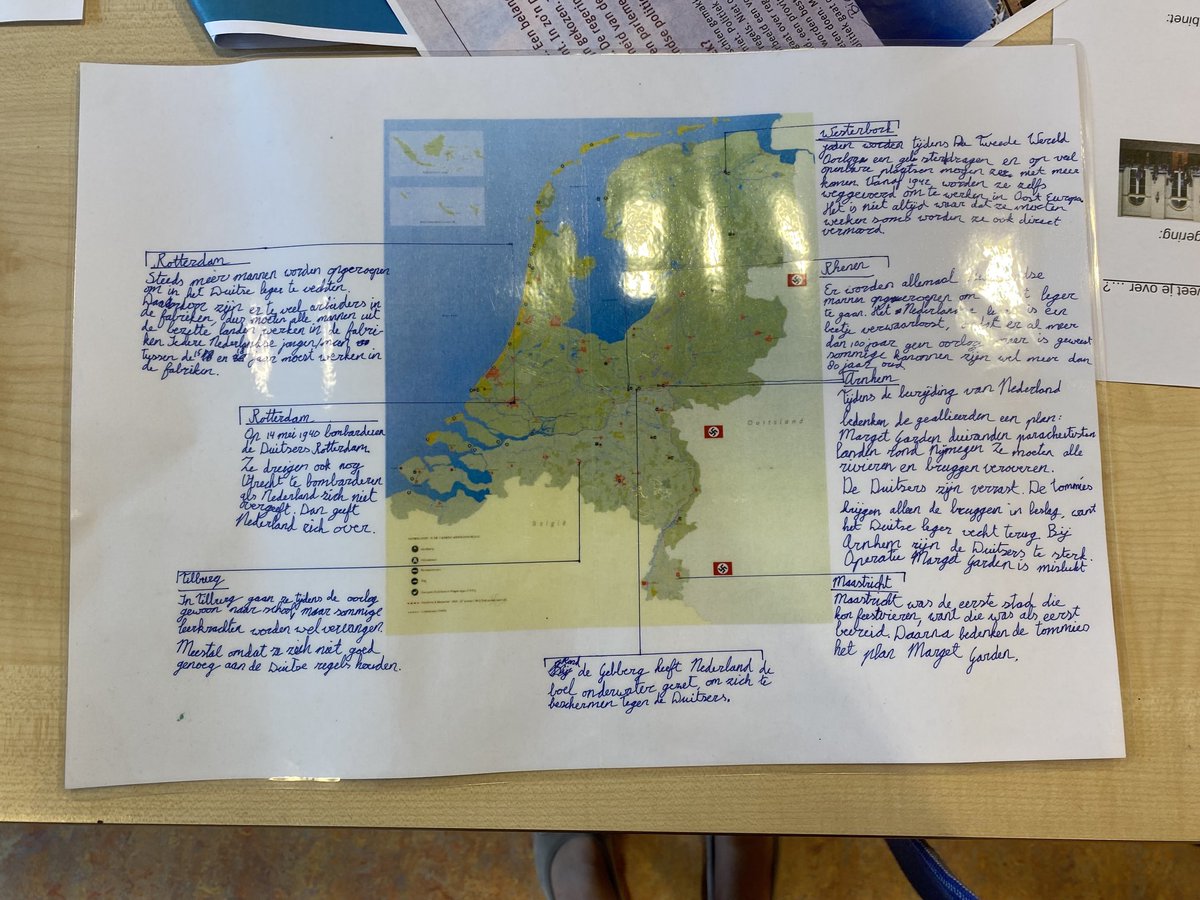 Rotterdam
Steeds meer mannen worden opgeroepen
om in het Duitse leger te vechten.
Daardoor zijn er te veel arbiders in
de fabrieken, dus moeten alle mannen uit
de bezette landen werken in de fabri-
ken. Iedere Nederlandse jongen/man
tussen de 18 en jaar moest werken in
de fabriken.
Rotterdam
Op 14 mei 1940 bombarderen
de Duitsers Rotterdam
Ze dreigen ook nog
Utrecht te bombarderen
als Nederland zich niet
overgeeft. Dan geeft
Nederland zich over.
Tilburg
In Tilburg gaan ze tijdens de oorlog
gewoon naar school, maar sommige
leerkrachten worden wel vervangen.
Meestal omdat ze zich niet goed
genoeg aan de Duitse regels houden.
Westerbork
joden worden tijdens De Tweede Wereld
Oorlog een gele ster dragen en op veel
openbare plaatsen mogen ze niet meer
komen. Vanaf 1942 worden ze zelfs
weggevoerd om te werken in Oost Europa.
Het is niet altijd waar dat ze moeten
werken soms worden ze ook direct
vermoord.
Rhenen
Er worden allemaal
mannen opgeroepen om leger
te gaan. Het Nederlandse is een
beetje verwaarloost, dat er al meer
dan 100 jaar geen oorlog meer is geweest
sommige kanonnen zijn wel meer dan
80 jaar oud.
Arnhem
Tijdens de bevrijding van Nederland
bedenken de geallieerden een plan:
Marget Garden duizenden parachutisten
landen rond Nijmegen Ze moeten alle
rivieren en bruggen veroveren.
De Duitsers zijn verrast. De tommies
krijgen alleen de bruggen in beslag, want
het Duitse leger vecht terug Bij
Arnhem zijn de Duitsers te sterk.
Operatie Marget Garden is mislukt
Maastricht
Maastricht was de eerste stad die
kon feestvieren, want die was als eerst
bevreid. Daarna bedenken de tommies
het plan Marget Garden.
de Gebberg heeft Nederland de
boel onderwater gezet, om zich te
beschermen tegen de Duitsers.
Duitsland
België